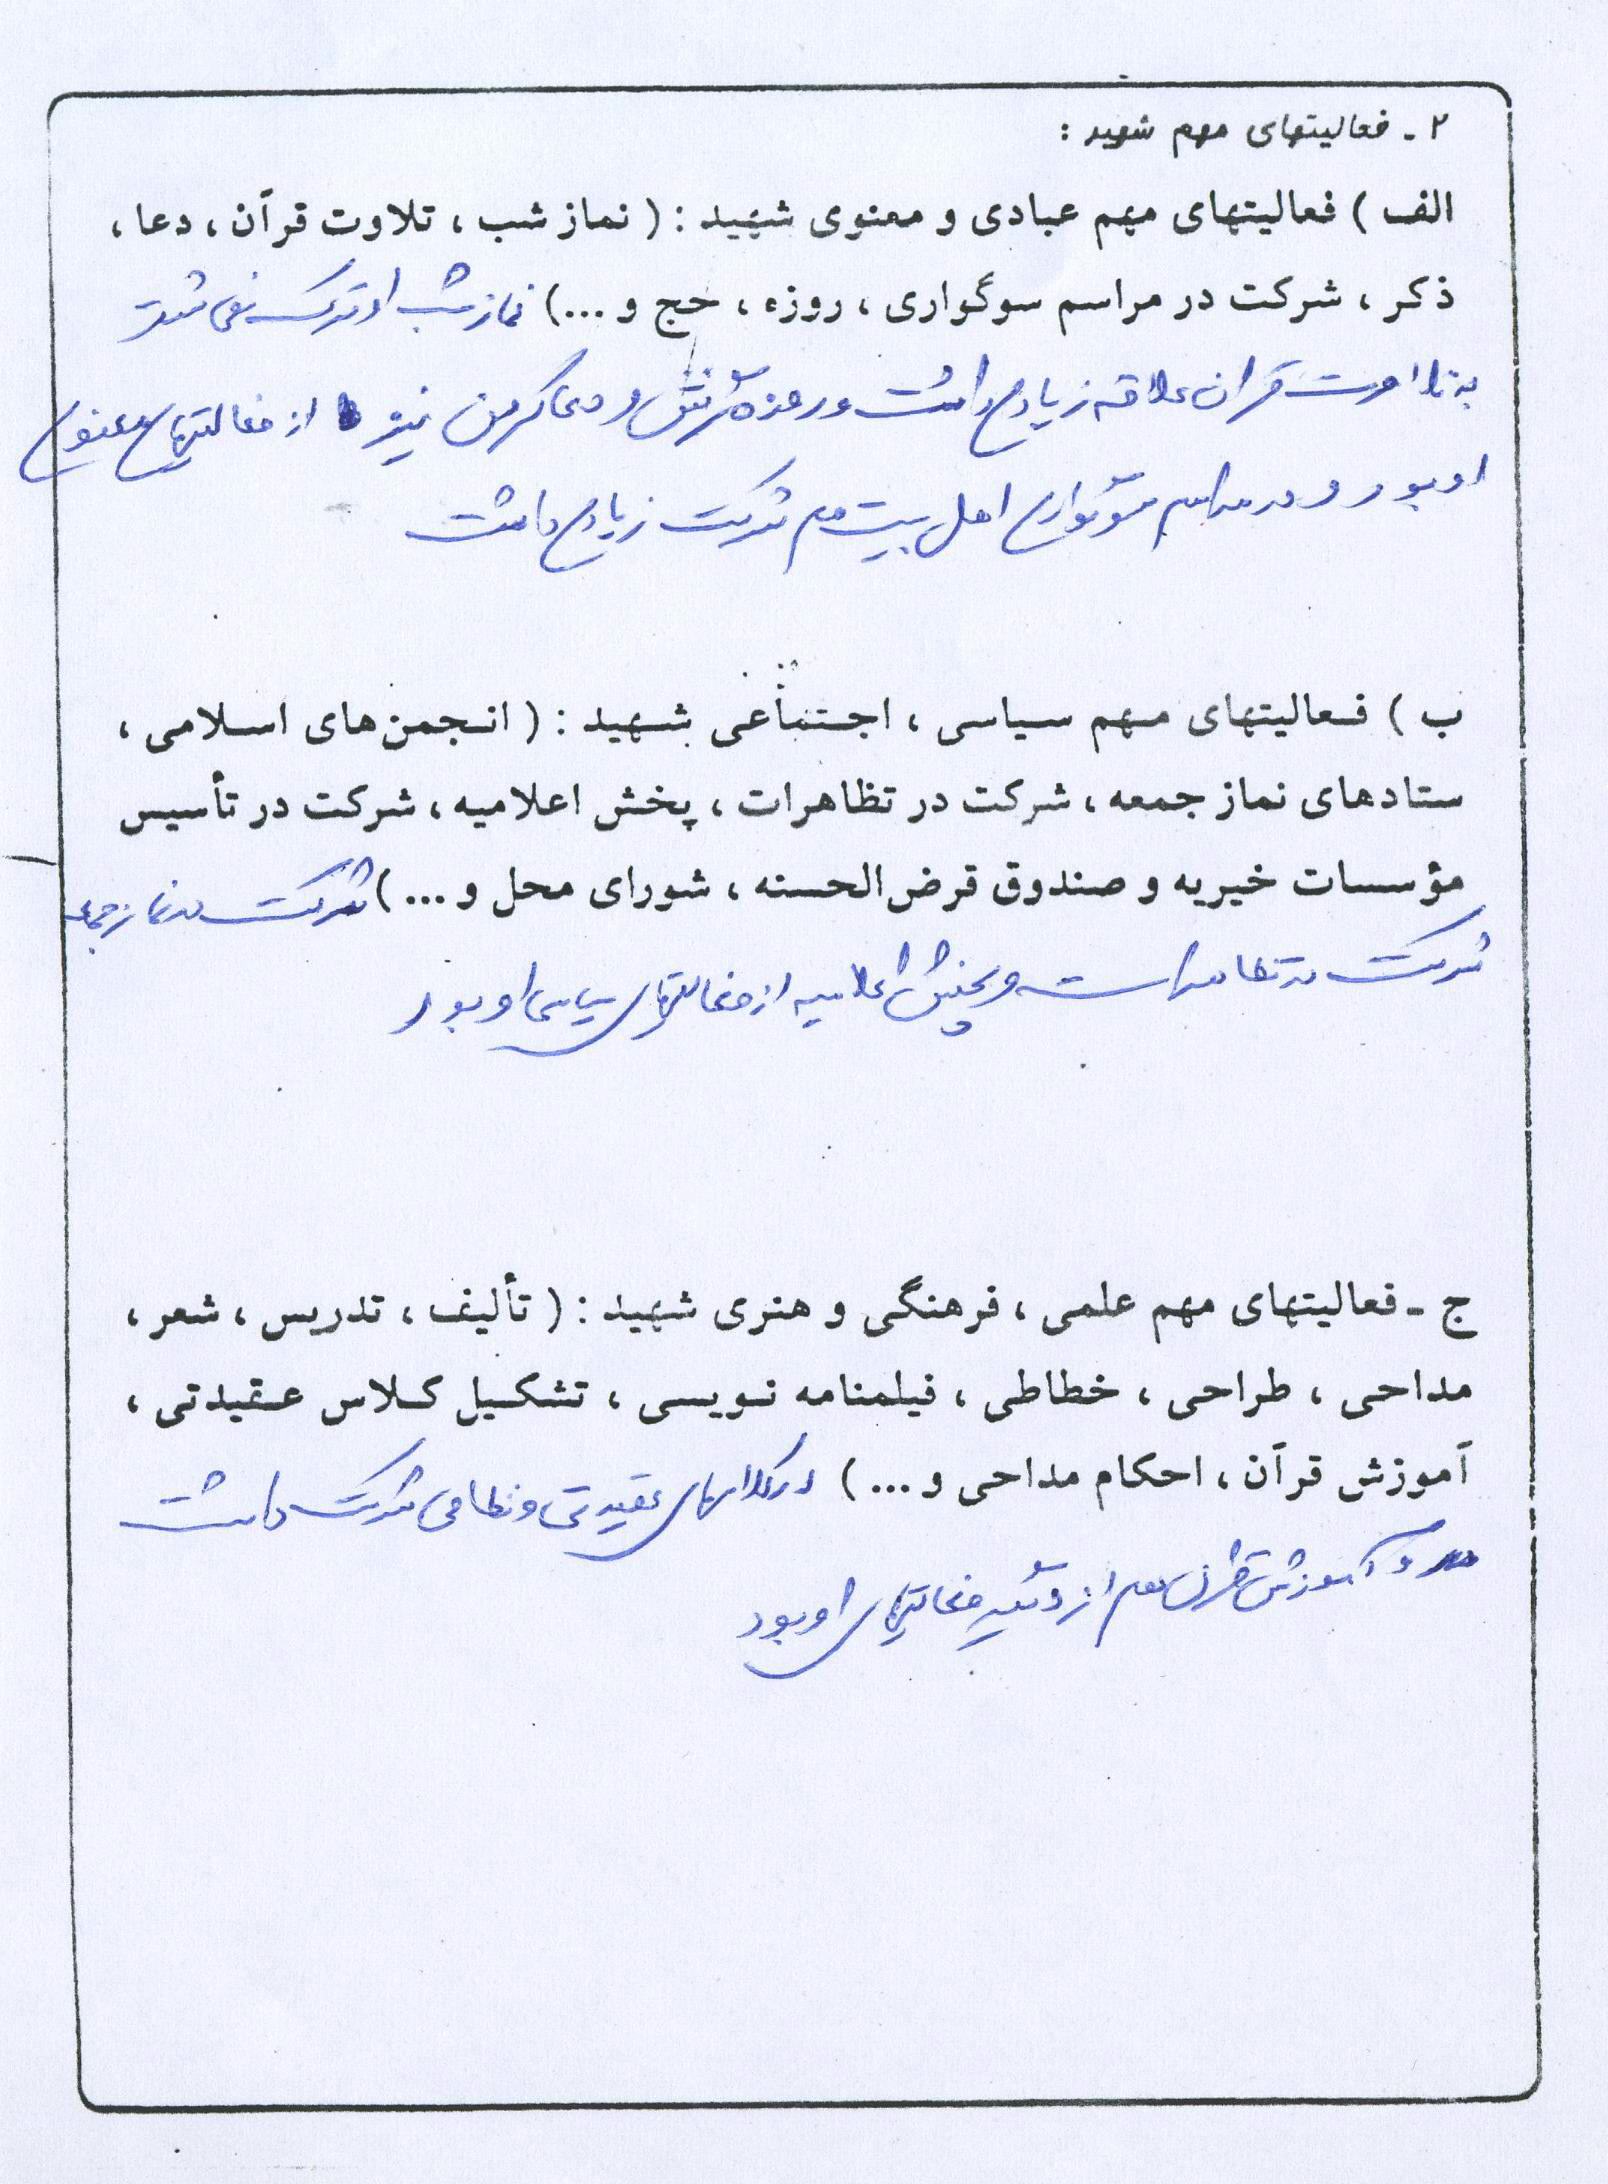 ۲ - فعالیتهای مهم شهید :
الف ) فعالیتهای مهم عبادی و معنوی شهید : ( نماز شب ، تلاوت قرآن ، دعا ،
ذکر ، شرکت در مراسم سوگواری ، روزه ، حج و ...) نماز شب او ترک نمی شد
به تلاوت قران علاقه زیادی داشت و روزه گرفتن و دعا کردن نیز از فعالیتهای معنوی
او بود و در مراسم سوگواری اهل بیت هم شرکت زیادی داشت
ب ) فعالیتهای مهم سیاسی ، اجتماعی شهید : ( انجمن‌های اسلامی ،
ستادهای نماز جمعه ، شرکت در تظاهرات ، پخش اعلامیه ، شرکت در تأسیس
مؤسسات خیریه و صندوق قرض‌الحسنه ، شورای محل و ...) شرکت در نماز جمعه
شرکت در تظاهرات و پخش اعلامیه از فعالیتهای سیاسی او بود
ج - فعالیتهای مهم علمی ، فرهنگی و هنری شهید : ( تألیف ، تدریس ، شعر ،
مداحی ، طراحی ، خطاطی ، فیلمنامه نویسی ، تشکیل کلاس عقیدتی ،
آموزش قرآن ، احکام مداحی و ... ) در کلاسهای عقیدتی و نظامی شرکت داشت
و آموزش قرآن هم از دیگر فعالیتهای او بود